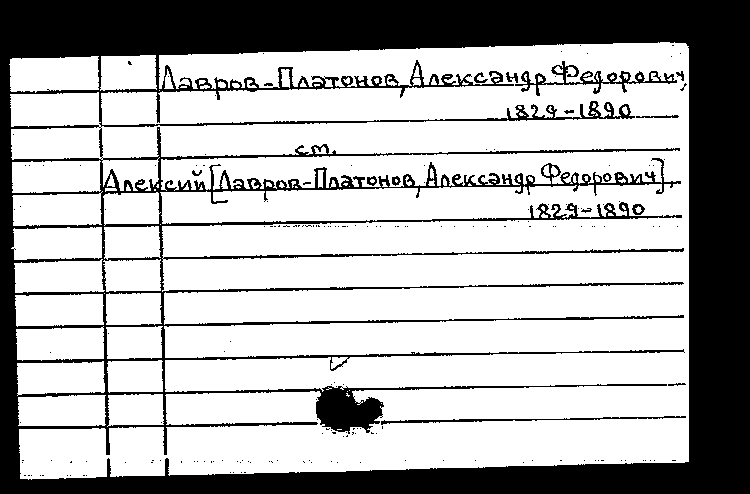 Лавров-Платонов, Александр Федорович,
1829-1890
см.
Алексий [Лавров-Платонов, Александр Федорович],
1829-1890